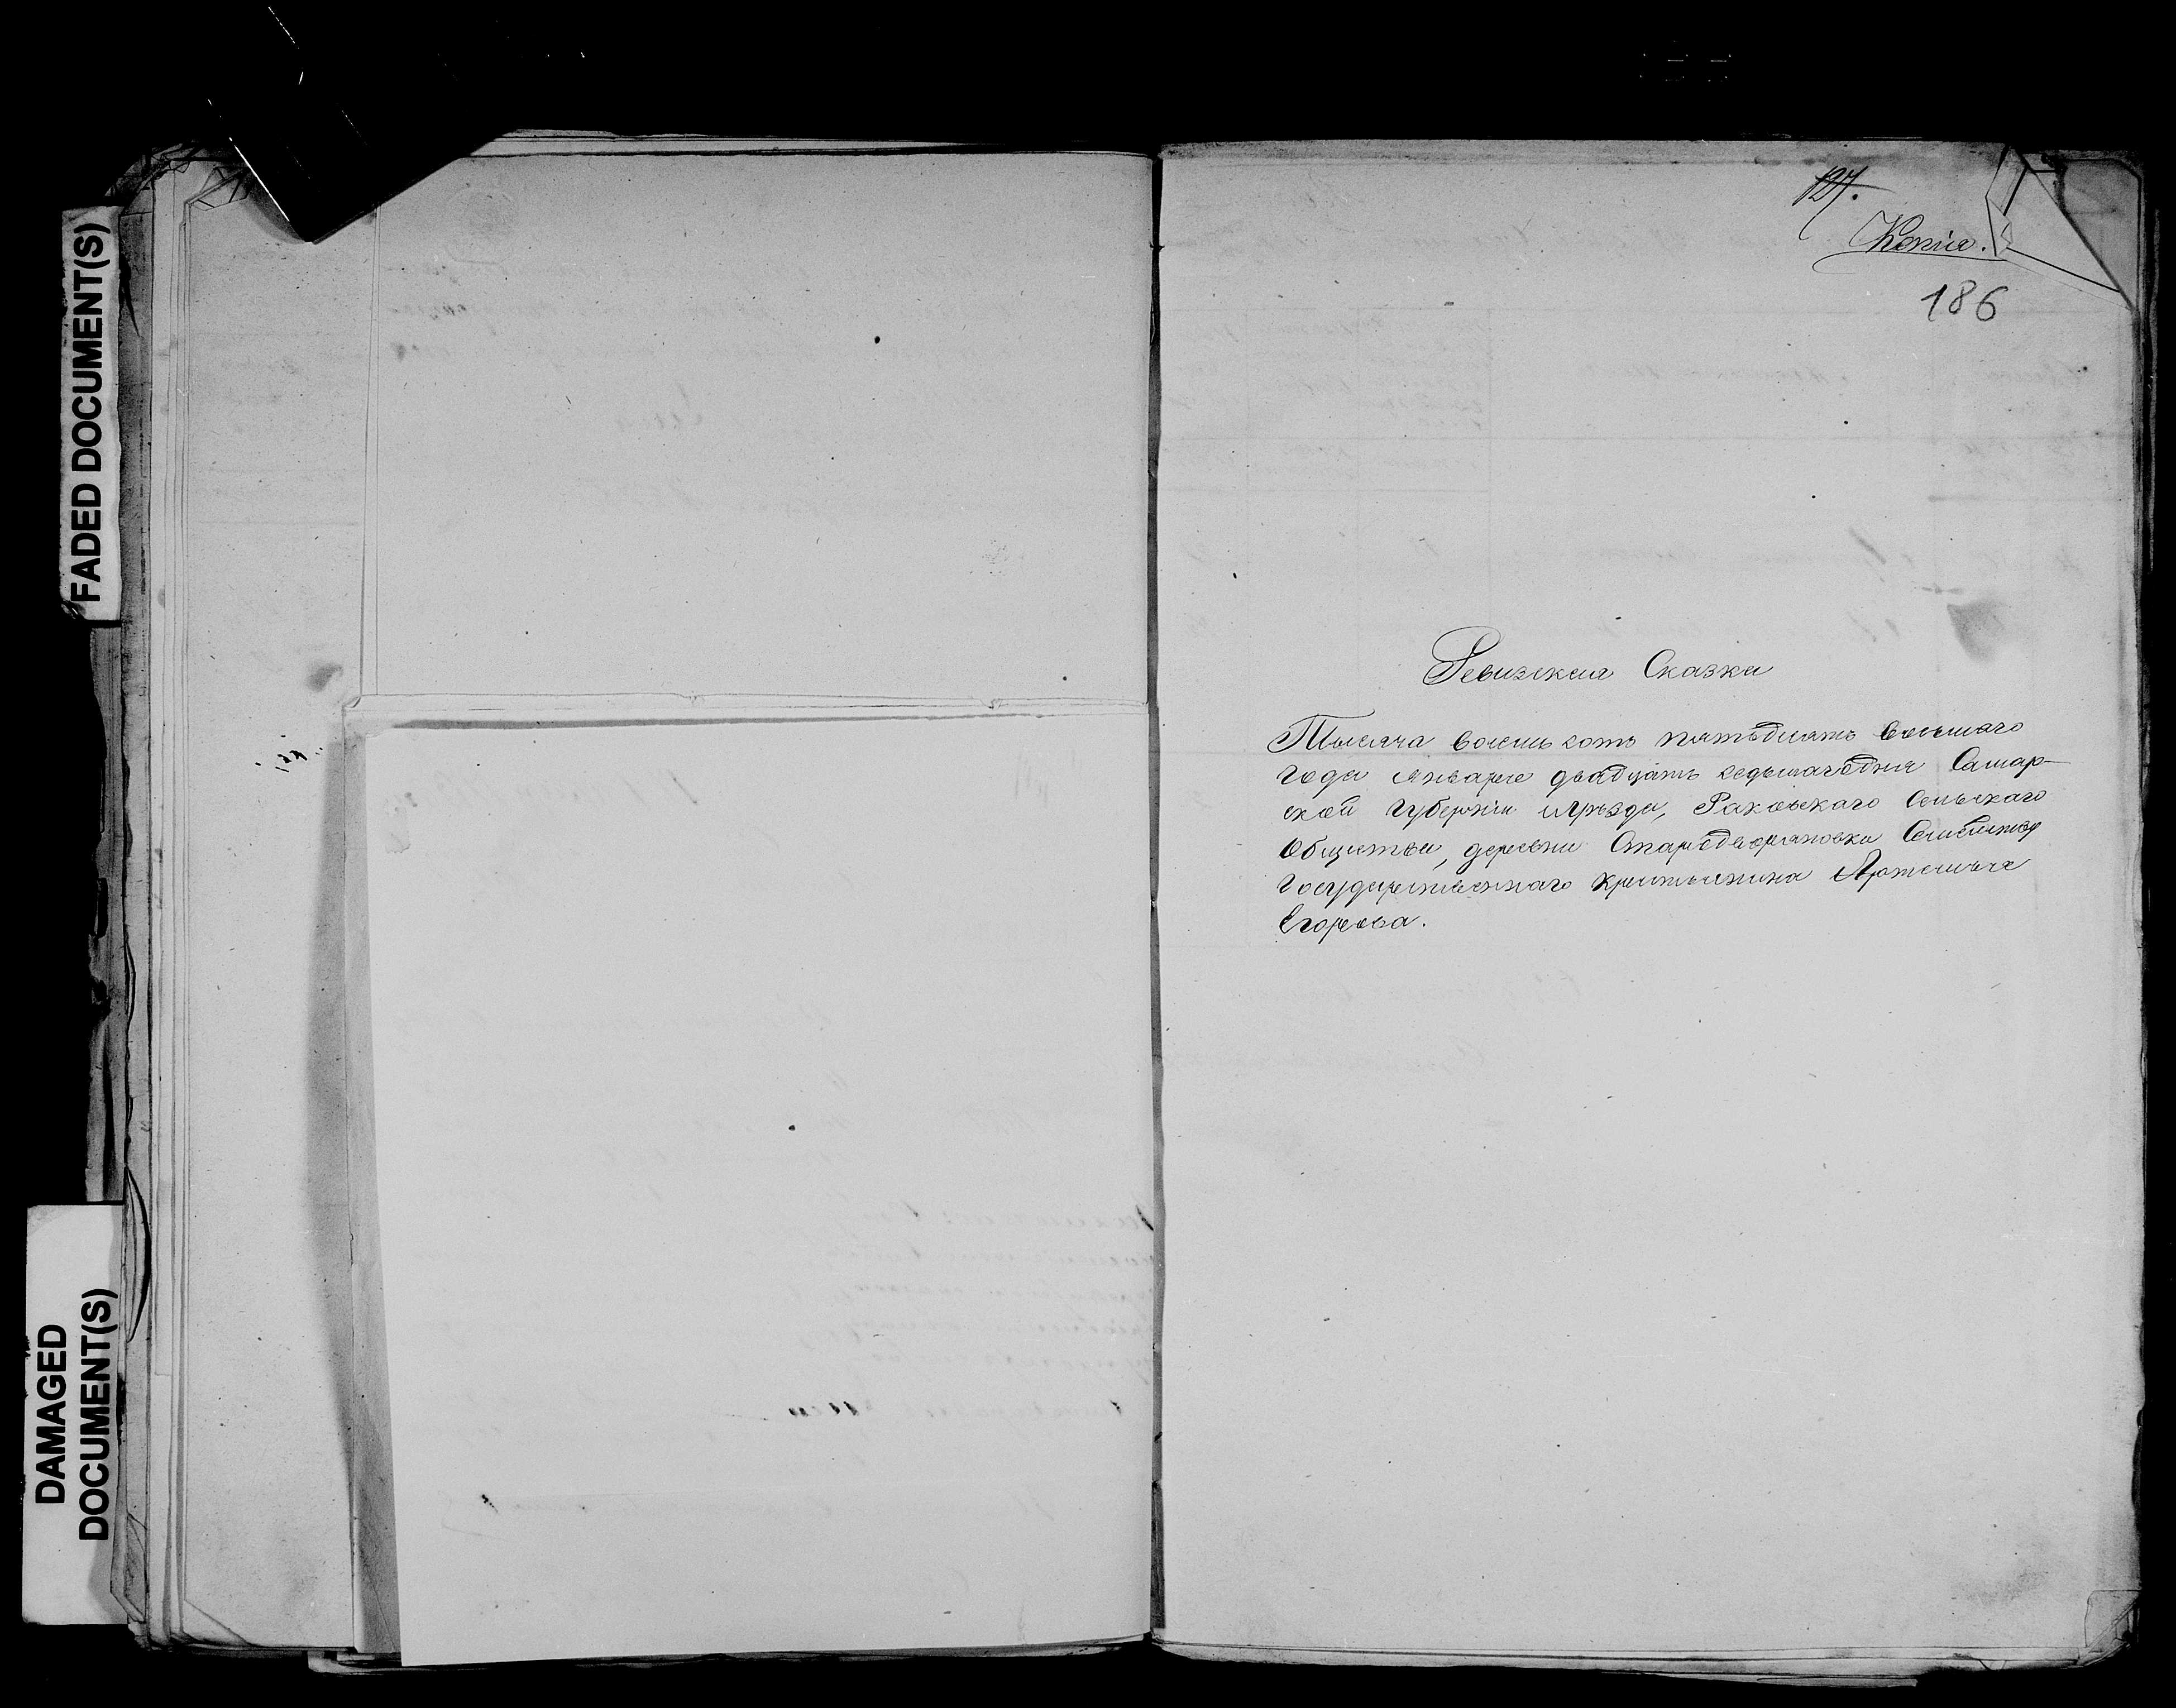 FADED DOCUMENT(S)
DAMAGED
DOCUMENT(S)
127.
Копія.
186
Ревизская Сказка
Тысяча восемь сотъ пятьдесятъ восьмаго
года января двадцать седьмаго дня Самар-
ской губерніи и уѣзда, Раковскаго Сельскаго
Общества, деревни Стародворяновки
Государственнаго крестьянина Артемья
Егорова.